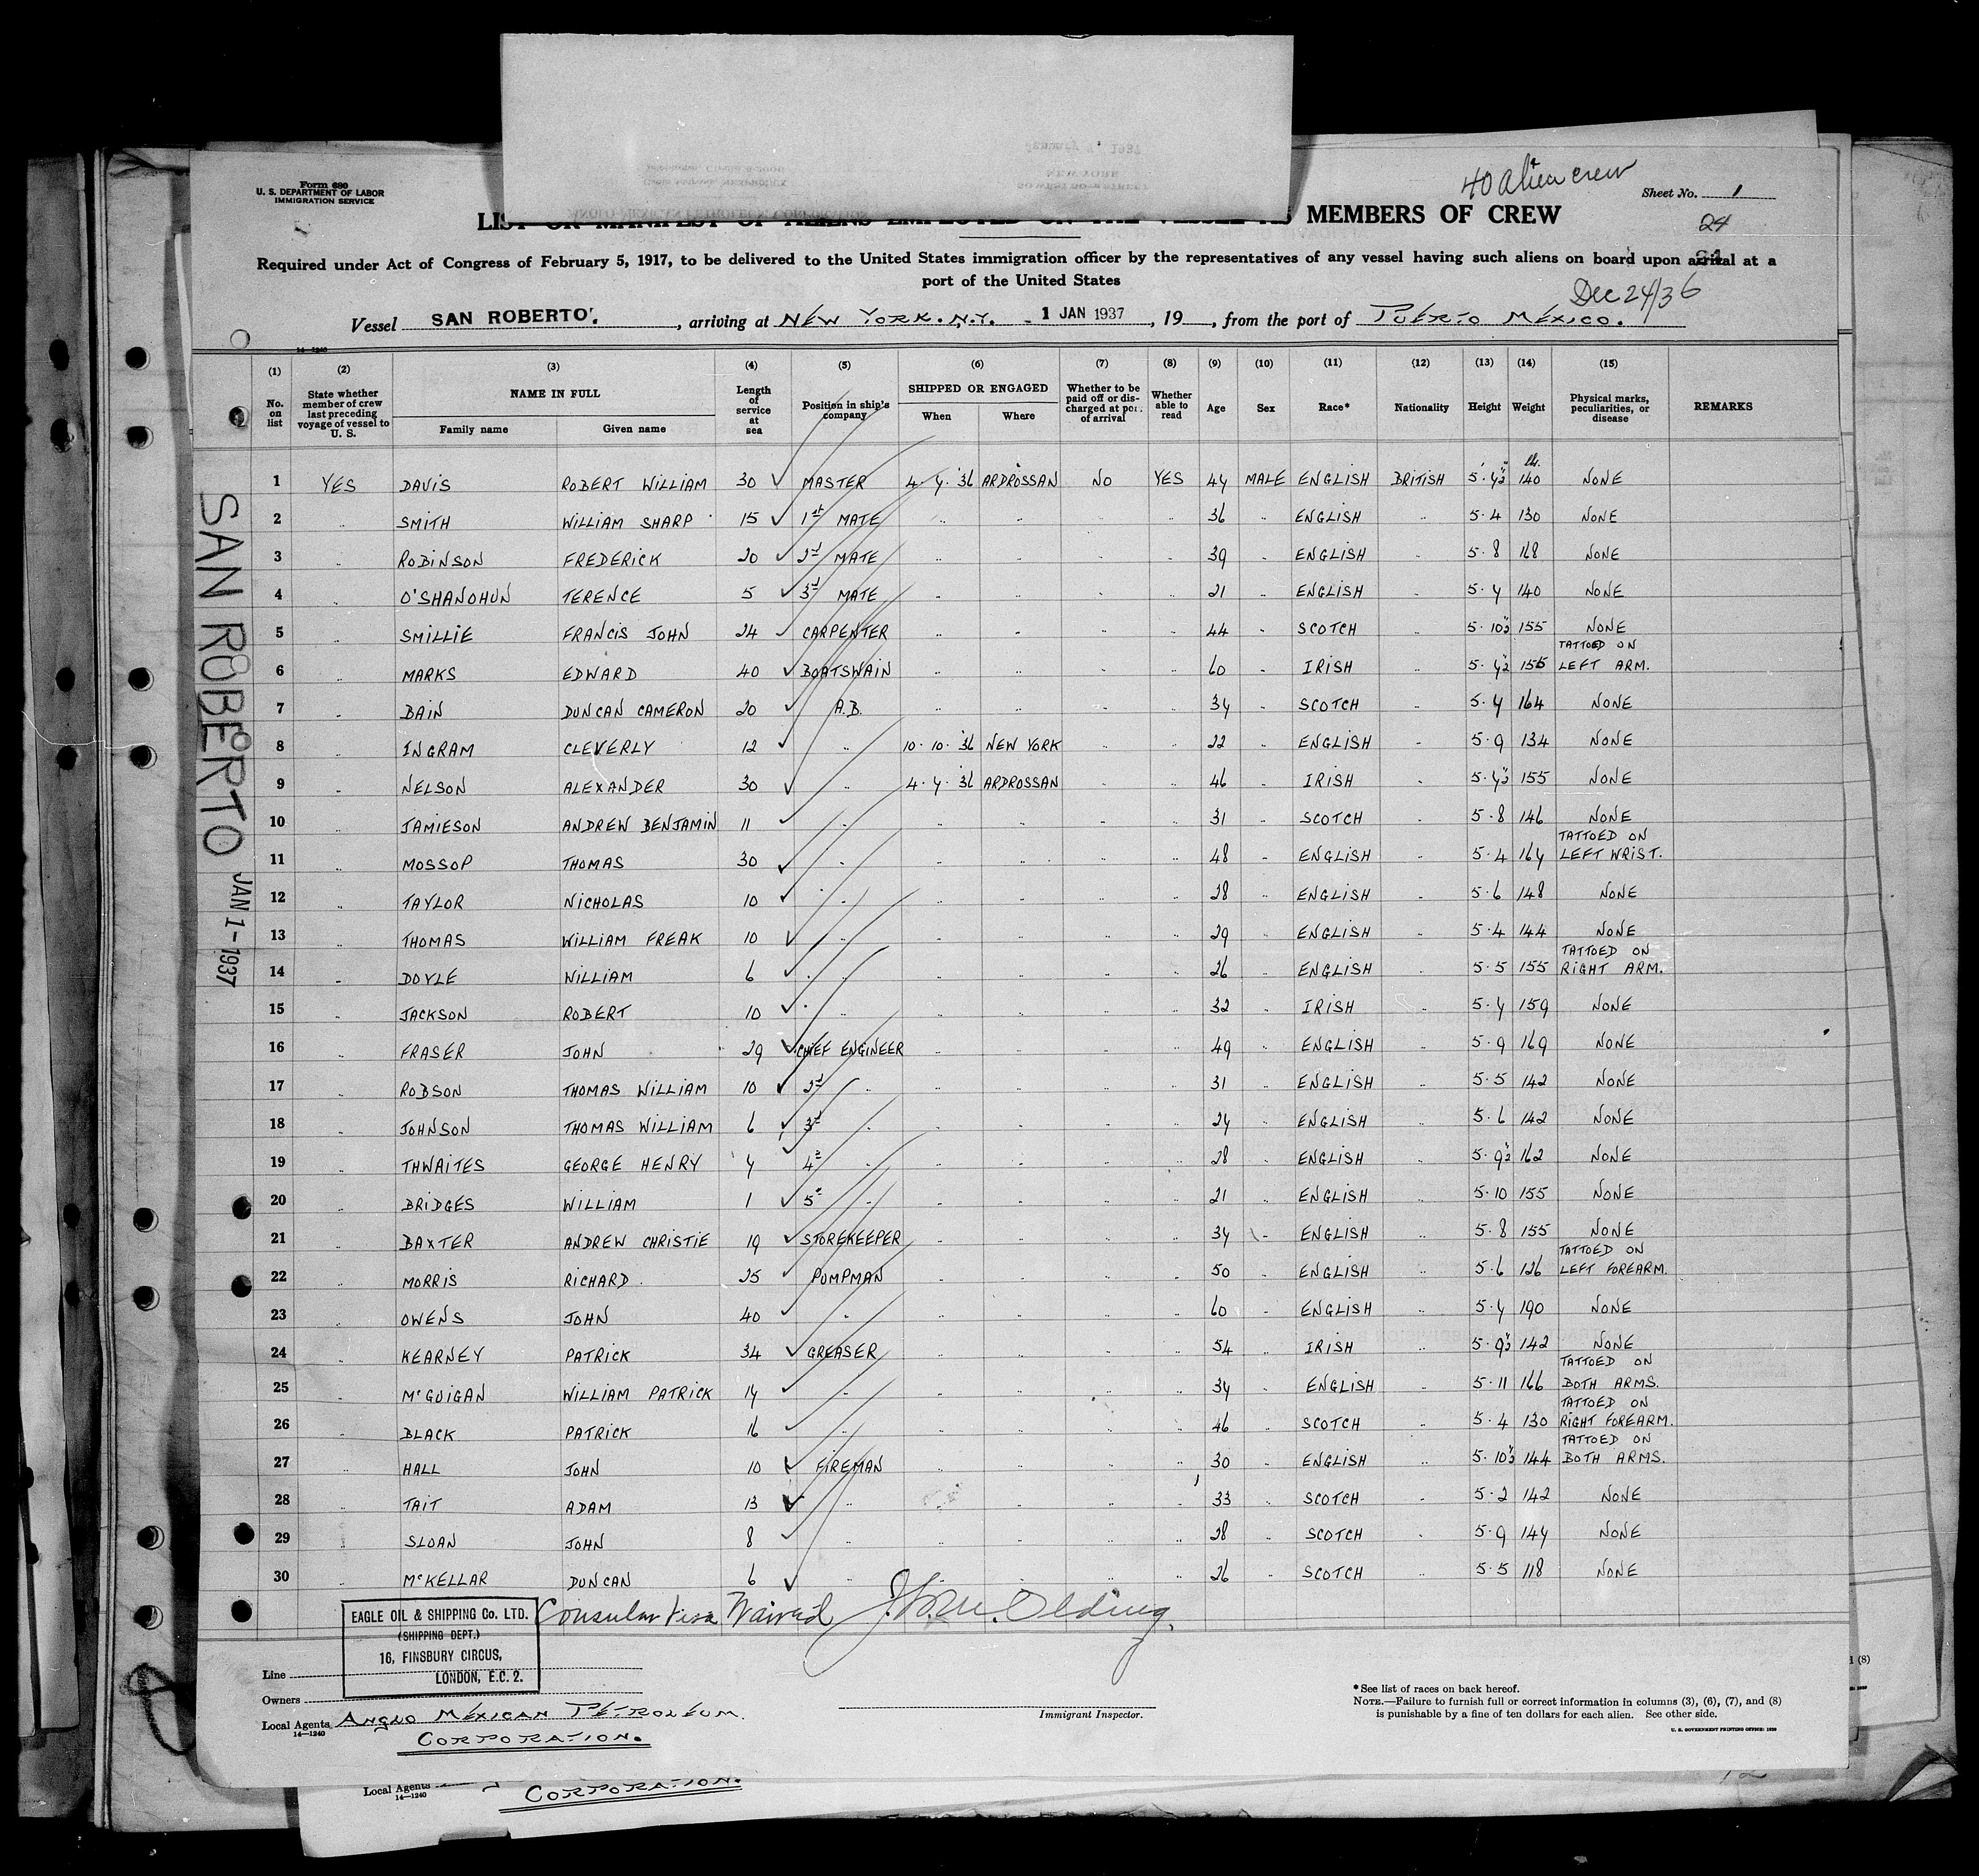 Form 680
U. S. DEPARTMENT OF LABOR
IMMIGRATION SERVICE
40 alien crew
Sheet No. 1
LIST OR MANIFEST OF ALIENS EMPLOYED ON THE VESSEL AS MEMBERS OF CREW
24
Required under Act of Congress of February 5, 1917, to be delivered to the United States immigration officer by the representatives of any vessel having such aliens on board upon arrival at a
port of the United States
Dec 24/36
Vessel SAN ROBERTO, arriving at NEW YORK. N.Y. 1 JAN 1937, 19, from the port of PUERTO MEXICO.
14—1240
(1) (2) (3) (4) (5) (6) (7) (8) (9) (10) (11) (12) (13) (14) (15)
No. on list
State whether member of crew last preceding voyage of vessel to U. S.
NAME IN FULL
Family name
Given name
Length of service at sea
Position in ship's company
SHIPPED OR ENGAGED
When
Where
Whether to be paid off or discharged at port of arrival
Whether able to read
Age
Sex
Race*
Nationality
Height
Weight
Physical marks, peculiarities, or disease
REMARKS
SAN ROBERTO JAN 1-1937
1 YES DAVIS ROBERT WILLIAM 30 MASTER 4·4·36 ARDROSSAN NO YES 44 MALE ENGLISH BRITISH 5·4½ 140 NONE
2 " SMITH WILLIAM SHARP 15 1st MATE " " " " 36 " ENGLISH " 5·4 130 NONE
3 " ROBINSON FREDERICK 20 2nd MATE " " " " 39 " ENGLISH " 5·8 168 NONE
4 " O'SHANOHUN TERENCE 5 3rd MATE " " " " 21 " ENGLISH " 5·4 140 NONE
5 " SMILLIE FRANCIS JOHN 24 CARPENTER " " " " 44 " SCOTCH " 5·10½ 155 NONE
6 " MARKS EDWARD 40 BOATSWAIN " " " " 60 " IRISH " 5·4½ 155 TATTOED ON LEFT ARM.
7 " BAIN DUNCAN CAMERON 20 A.B. " " " " 34 " SCOTCH " 5·4 164 NONE
8 " INGRAM CLEVERLY 12 " 10·10·36 NEW YORK " " 22 " ENGLISH " 5·9 134 NONE
9 " NELSON ALEXANDER 30 " 4·4·36 ARDROSSAN " " 46 " IRISH " 5·4½ 155 NONE
10 " JAMIESON ANDREW BENJAMIN 11 " " " " " 31 " SCOTCH " 5·8 146 NONE
11 " MOSSOP THOMAS 30 " " " " " 48 " ENGLISH " 5·4 164 TATTOED ON LEFT WRIST.
12 " TAYLOR NICHOLAS 10 " " " " " 28 " ENGLISH " 5·6 148 NONE
13 " THOMAS WILLIAM FREAK 10 " " " " " 29 " ENGLISH " 5·4 144 NONE
14 " DOYLE WILLIAM 6 " " " " " 26 " ENGLISH " 5·5 155 TATTOED ON RIGHT ARM.
15 " JACKSON ROBERT 10 " " " " " 32 " IRISH " 5·4 159 NONE
16 " FRASER JOHN 29 CHIEF ENGINEER " " " " 49 " ENGLISH " 5·9 169 NONE
17 " ROBSON THOMAS WILLIAM 10 2nd " " " " " 31 " ENGLISH " 5·5 142 NONE
18 " JOHNSON THOMAS WILLIAM 6 3rd " " " " " 24 " ENGLISH " 5·6 142 NONE
19 " THWAITES GEORGE HENRY 4 4th " " " " " 28 " ENGLISH " 5·9½ 162 NONE
20 " BRIDGES WILLIAM 1 5th " " " " " 21 " ENGLISH " 5·10 155 NONE
21 " BAXTER ANDREW CHRISTIE 19 STOREKEEPER " " " " 34 " ENGLISH " 5·8 155 NONE
22 " MORRIS RICHARD 25 PUMPMAN " " " " 50 " ENGLISH " 5·6 126 TATTOED ON LEFT FOREARM.
23 " OWENS JOHN 40 " " " " " 60 " ENGLISH " 5·4 190 NONE
24 " KEARNEY PATRICK 34 GREASER " " " " 54 " IRISH " 5·9½ 142 NONE
25 " McGUIGAN WILLIAM PATRICK 14 " " " " " 34 " ENGLISH " 5·11 166 TATTOED ON BOTH ARMS.
26 " BLACK PATRICK 16 " " " " " 46 " SCOTCH " 5·4 130 TATTOED ON RIGHT FOREARM.
27 " HALL JOHN 10 FIREMAN " " " " 30 " ENGLISH " 5·10½ 144 TATTOED ON BOTH ARMS.
28 " TAIT ADAM 13 " " " " " 33 " SCOTCH " 5·2 142 NONE
29 " SLOAN JOHN 8 " " " " " 28 " SCOTCH " 5·9 144 NONE
30 " McKELLAR DUNCAN 6 " " " " " 26 " SCOTCH " 5·5 118 NONE
Consular Visa Waived Olding.
EAGLE OIL & SHIPPING Co. LTD.
(SHIPPING DEPT.)
16, FINSBURY CIRCUS,
LONDON, E.C. 2.
Line
Owners
Local Agents ANGLO MEXICAN PETROLEUM
14—1240
CORPORATION.
Immigrant Inspector.
*See list of races on back hereof.
NOTE.—Failure to furnish full or correct information in columns (3), (6), (7), and (8)
is punishable by a fine of ten dollars for each alien. See other side.
U. S. GOVERNMENT PRINTING OFFICE
Local Agents
14—1240
CORPORATION.